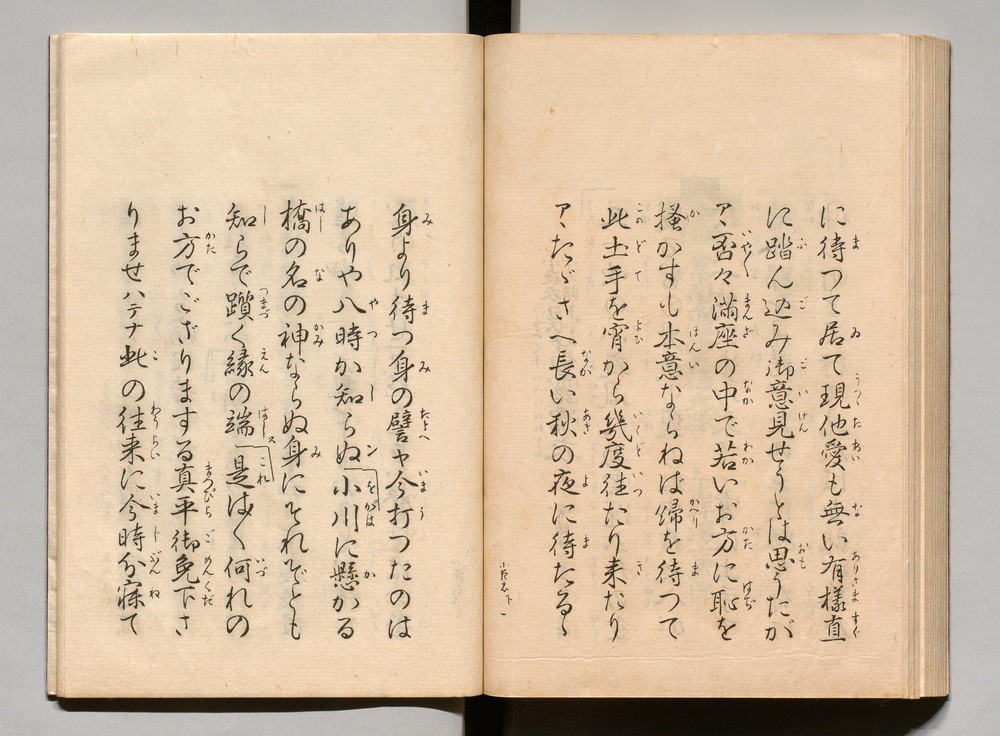 に待つて居て現他愛も無い有樣直
に踏ん込み御意見せうとは思うたが
アヽ否々滿座の中で若いお方に恥を
搔かすも本意ならねば歸を待つて
此土手を宵から幾度往たり来たり
アヽたゞさへ長い秋の夜に待たるゝ
身より待つ身の譬ヤ今打つたのは
ありや八時か知らぬ小川に懸かる
橋の名の神ならぬ身にそれぞとも
知らで躓く縁の端是は〱何れの
お方でござりまする真平御免下さ
りませハテナ此の往来に今時分寐て